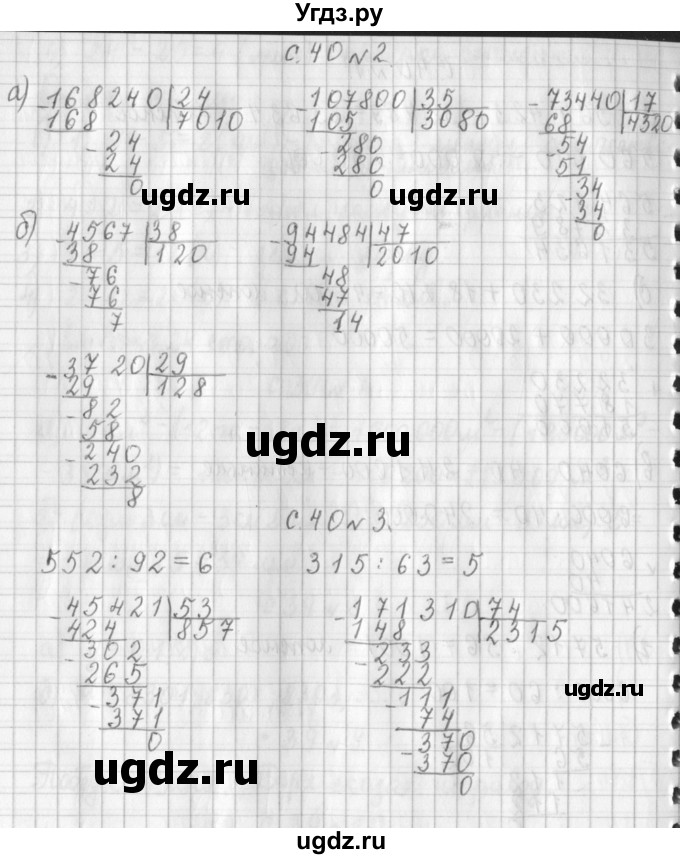 Угдз.ру
с. 40 № 2
а) 168240 | 24   107800 | 35   73440 | 17
168   7010   105   3080   68   4320
24   280   54
24   280   51
0   0   34
34
0
ugdz.ru ugdz.ru ugdz.ru
б) 4567 | 38   94484 | 47
38   120   94   2010
76   48
76   47
7   14
3720 | 29
29   128
82
58
240
232
8
ugdz.ru ugdz.ru
с. 40 № 3.
552 : 92 = 6   315 : 63 = 5
45421 | 53   171310 | 74
424   857   148   2315
302   233
265   222
371   111
371   74
0   370
370
0
ugdz.ru ugdz.ru
ugdz.ru